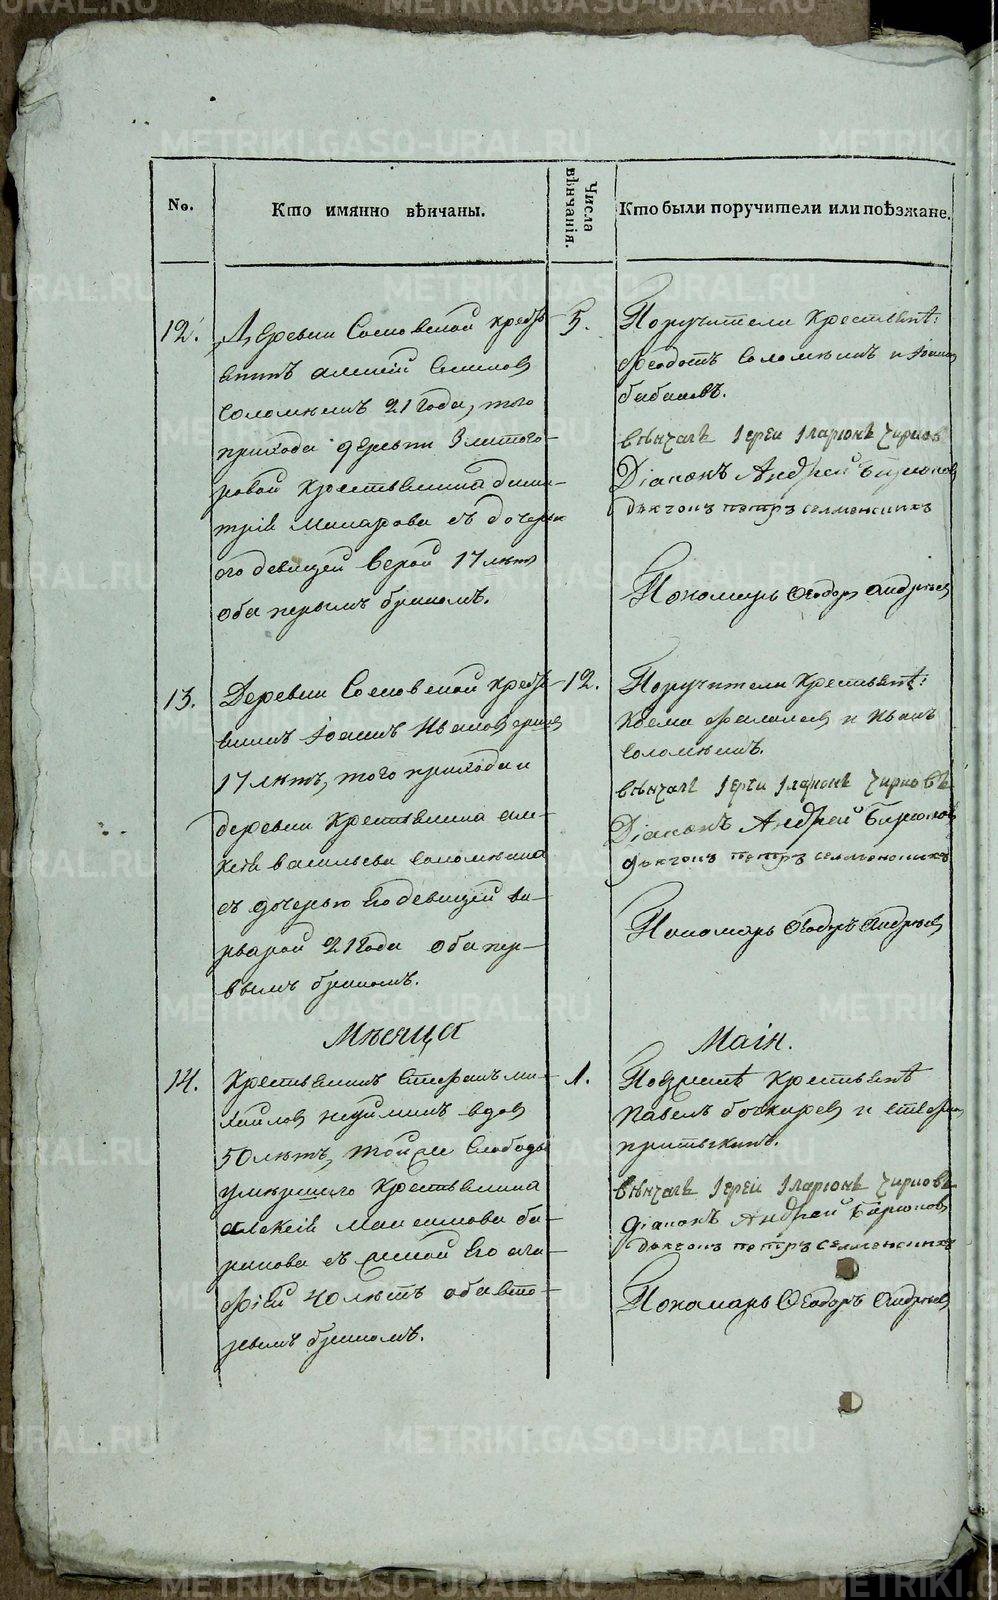 №.
Кто имянно вѣнчаны.
Числа вѣнчанія.
Кто были поручители или поѣзжане.
12.
Деревни Сосновской Кресть-
янинъ
Соломѣинъ 21 года, того
прихода деревни Златого-
ровой Крестьянина дими-
трія Макарова съ дочерью
его девицей Верой 17 лѣтъ
оба первымъ бракомъ.
5.
Поручители Крестьянѣ:
Феодотъ Соломѣинъ и Иоанн
бабановъ.
вѣнчалъ Іерей Іларіонъ Чирковъ
Діаконъ Андрей Бирюков
дьячокъ петръ
Пономарь Феодоръ Андрѣев
13.
Деревни Сосновской Кресть-
янинъ Іоаннъ Иванов
17 лѣтъ, того прихода и
деревни Крестьянина але-
ксѣя васильева соломѣина
съ дочерью Его девицей ва-
рварой 21 года оба пер-
вымъ бракомъ.
12.
Поручители Крестьянѣ:
и Иванъ
Соломѣинъ.
вѣнчалъ Іерей Іларіонъ Чирковъ
Діаконъ Андрей Бирюков
дьячокъ петръ
Пономарь Феодоръ Андрѣев
Мѣсяца
Маія.
14.
Крестьянинъ Стефанъ ми-
хайлов вдов
50 лѣтъ, той же Слободы
умершаго Крестьянина
алексѣя
съ женой Его ага-
фіей 40 лѣтъ оба вто-
рымъ бракомъ.
1.
Поезжанѣ Крестьянѣ
Павелъ бочкарев и стефан
вѣнчалъ Іерей Іларіонъ Чирковъ
діаконъ Андрей Бирюков
дьячокъ петръ
Пономарь Феодоръ Андрѣев
METRIKI.GASO-URAL.RU